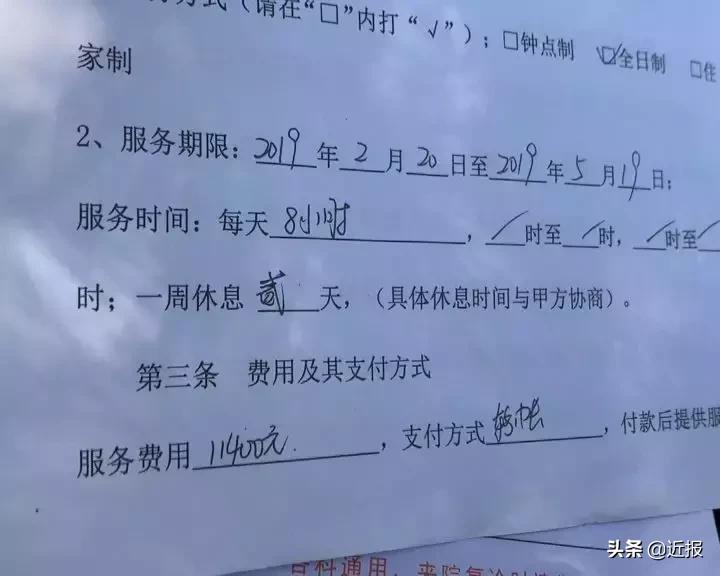 方式（请在“□”内打“√”）；□钟点制 ☑全日制 □住
家制
2、服务期限：2019年2月20日至2019年5月19日；
服务时间：每天8小时，/时至/时，/时至/
时；一周休息贰天，（具体休息时间与甲方协商）。
第三条 费用及其支付方式
服务费用11400元.，支付方式转帐，付款后提供服
百科通用，来院复诊时请
头条 @近报